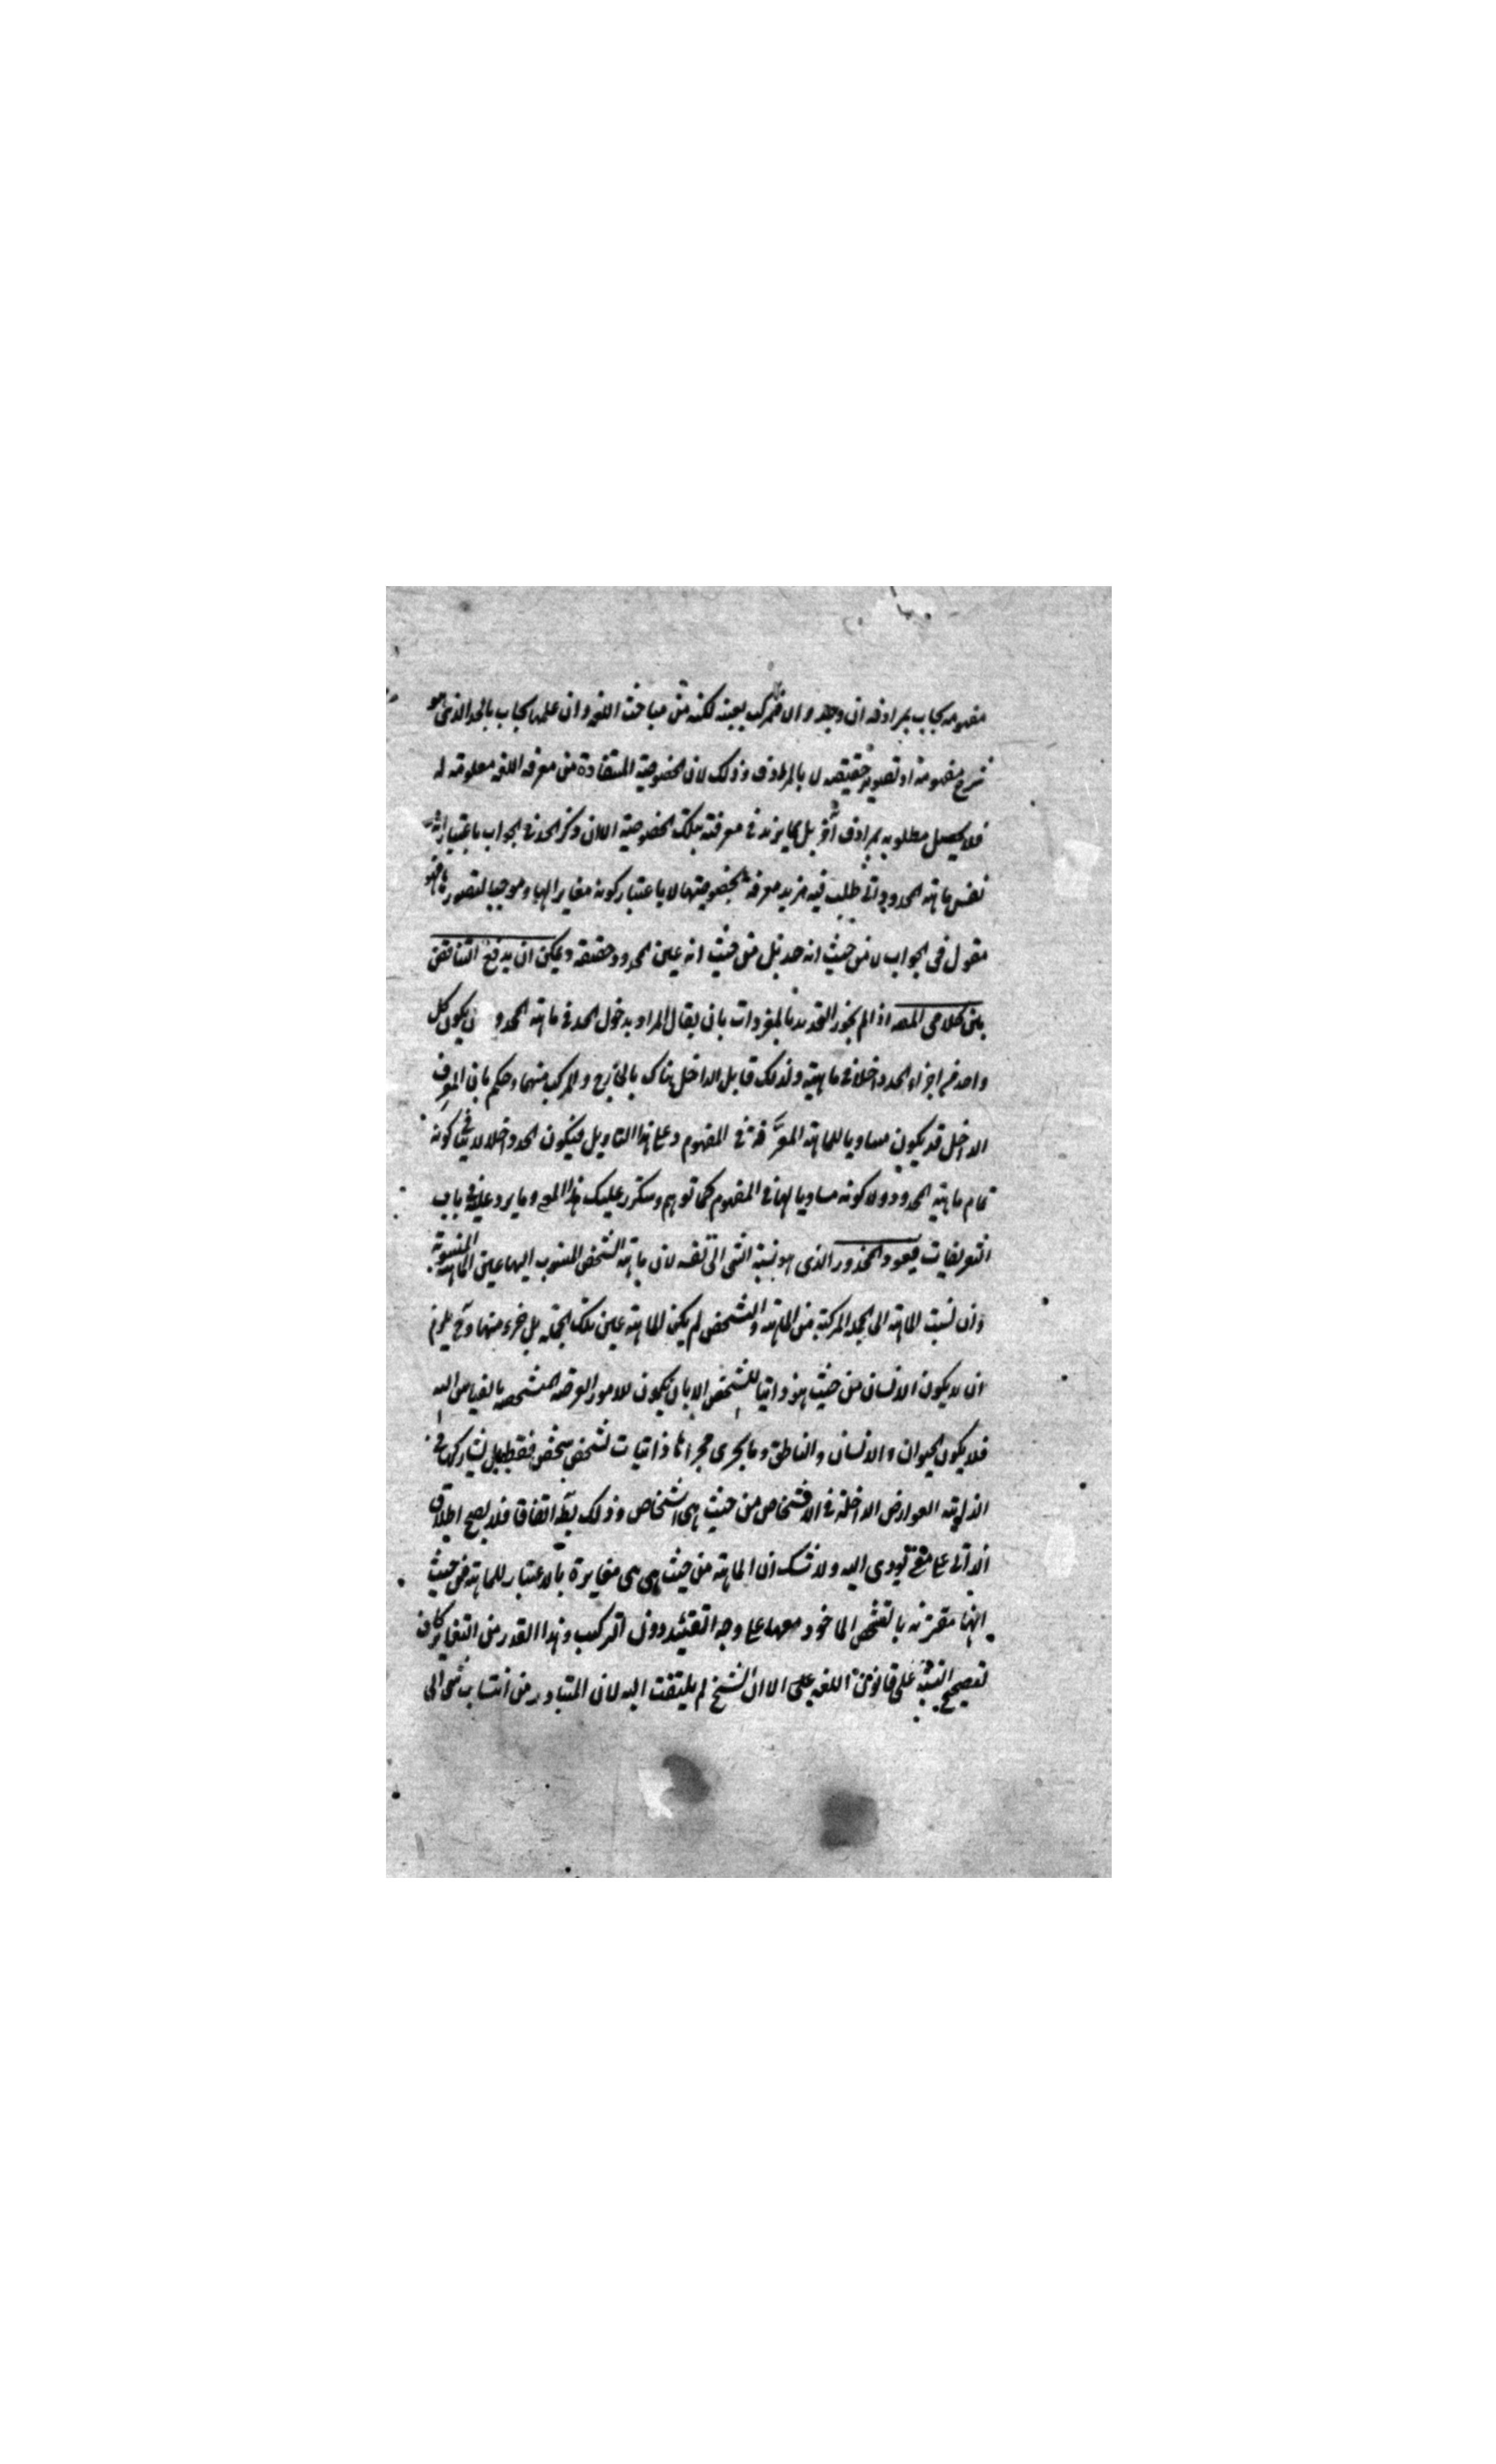 مفهومه يجاب بمرادفه ان وجد والا فمركب يعينه لكنه من مباحث اللغة وان علمها يجاب بالحد الذى هو
شرح مفهومه او تصوير حقيقته لا بالمرادف وذلك لان الخصوصية المستفادة من معرفة اللغة معلومة له
فلا يحصل مطلوبه بمرادف آخر بل بما يزيد فى معرفته بتلك الخصوصية الا ان ذكر الحد فى الجواب باعتبار انه
نفس ماهية المحدود التى طلب فيه مزيد معرفة بخصوصيتها لا باعتبار كونه مغايرا لها وموجبا لتصورها فهو
مقول فى الجواب لا من حيث انه حد بل من حيث انه عين المحدود حقيقة ويمكن ان يدفع التناقض
بين كلامى المصه اذا لم يجوز التحديد بالمفردات بان يقال المراد بدخول الحد فى ماهية المحدود ان يكون كل
واحد من اجزاء الحد داخلا فى ماهيته ولذلك قابل الداخل هناك بالخارج والمركب منهما وحكم بان المعرف
الداخل قد يكون مساويا للماهية المعرَّفة فى المفهوم وعلى هذا التاويل فيكون الحد داخلا لا ينافى كونه
تمام ماهية المحدود ولا كونه مساويا لها فى المفهوم كما توهم وستكرر عليك هذا المعنى وما يرد عليه فى باب
التعريفات فيعود المحذور الذى هو نسبة الشى الى نفسه لان ماهية الشخص المنسوب اليها عين الماهية المنسوبة
وان نسبت الماهية الى الجملة المركبة من الماهية والتشخص لم يكن الماهية عين تلك الجملة بل جزء منها وح يلزم
ان لا يكون الانسان من حيث هو ذاتيا للشخص الا بان يكون للامور العرضية المشخصة بالقياس اليه
فلا يكون الحيوان والانسان والناطق وما يجرى مجراها ذاتيات لشخص شخص فقط بل يشاركها فى
الذاتية العوارض الداخلة فى الاشخاص من حيث هى اشخاص وذلك بط اتفاقا فلا يصح اطلاق
الذاتى على معنى يؤدى اليه ولا شك ان الماهية من حيث هى هى مغايرة بالاعتبار للماهية من حيث
انها مقترنة بالتشخص الماخوذ معها على وجه التقييد دون التركيب وهذا القدر من التغاير كاف
لتصحيح النسبة على قانون اللغة على الا ان الشيخ لم يلتفت اليه لان المتبادر من انتساب شى الى